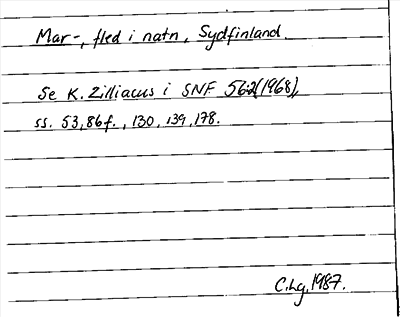 Mar-, fled i natn, Sydfinland.
Se K. Zilliacus i SNF 56:2(1968),
ss. 53, 86 f., 130, 139, 178.
C.Lg. 1987.